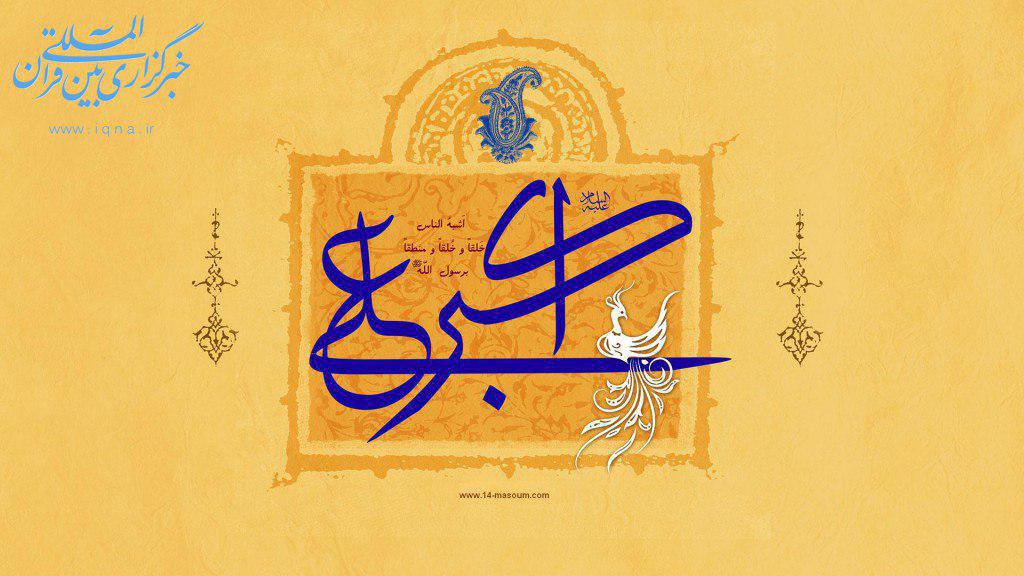 خبرگزاری بین المللی قرآن
www.iqna.ir
علی اکبر
علیه السلام
أشبهُ الناس
خَلقاً و خُلقاً و منطقاً
برسول اللّه ﷺ
www.14-masoum.com